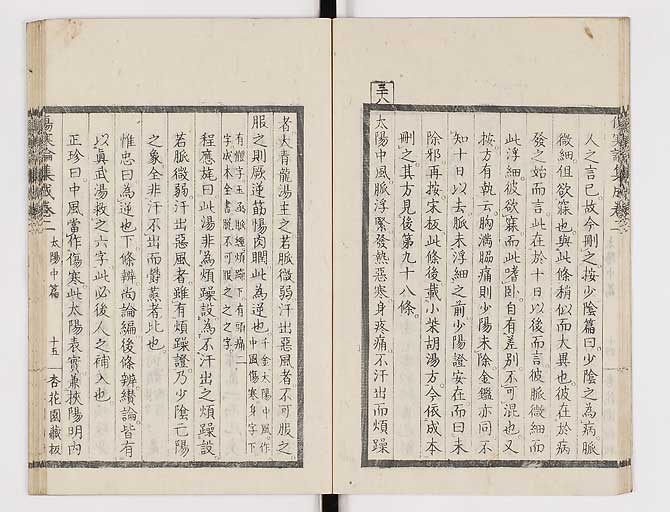 傷寒論集成卷二
太陽中篇
人之言已故今刪之按少陰篇曰少陰之為病脈
微細但欲寐也與此條稍似而大異也彼在於病
發之始而言此在於十日以後而言彼脈微細而
此浮細彼欲寐而此嗜卧自有差別不可混也又
按方有執云胸滿脇痛則少陽未除金鑑亦同不
知十日以去脈未浮細之前少陽證安在而曰未
除邪再按宋板此條後載小柴胡湯方今依成本
刪之其方見後第九十八條
三十八
太陽中風脈浮緊發熱惡寒身疼痛不汗出而煩躁
者大青龍湯主之若脈微弱汗出惡風者不可服之
服之則厥逆筋惕肉瞤此為逆也千金太陽中風作中風傷寒身字下
有體字玉函脈經煩躁下有頭痛二字成本全書脫不可服之之之字
程應旄曰此湯非為煩躁設為不汗出之煩躁設
若脈微弱汗出惡風者雖有煩躁證乃少陰亡陽
之象全非汗不出而鬱蒸者比也
惟忠曰為逆也下條辨尚論編後條辨纘論皆有
以真武湯救之六字此必後人之補入也
正珍曰中風當作傷寒此太陽表實兼挾陽明內
傷寒論集成卷二
太陽中篇
十五
杏花園藏板